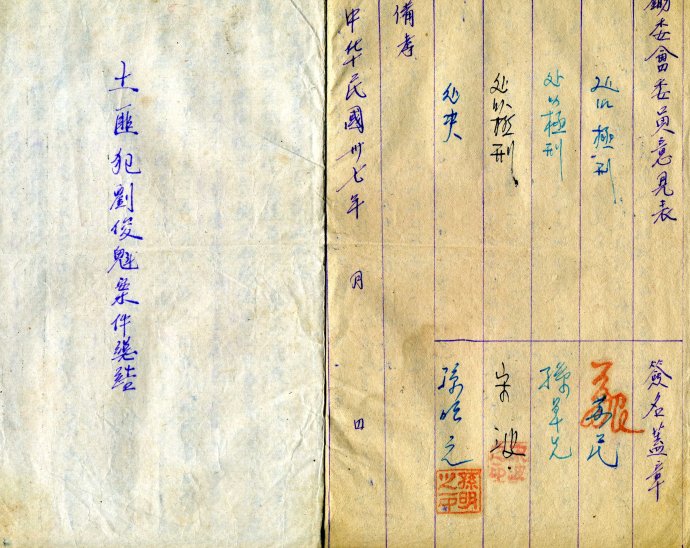 鋤委會委員意見表
簽名蓋章
处以極刑
民
处以極刑
孫
处以極刑
宋波
处央
孫明元
孫明之印
備考
中華民國卅七年 月 日
土匪犯劉俊魁案件總結